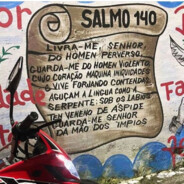 SALMO 140
LIVRA-ME, SENHOR,
DO HOMEM PERVERSO,
GUARDA-ME DO HOMEM VIOLENTO,
CUJO CORAÇÃO MAQUINA INIQUIDADES
E VIVE FORJANDO CONTENDAS.
AGUÇAM A LÍNGUA COMO A
SERPENTE; SOB OS LÁBIOS
TEM VENENO DE ÁSPIDE
GUARDA-ME SENHOR
DA MÃO DOS ÍMPIOS